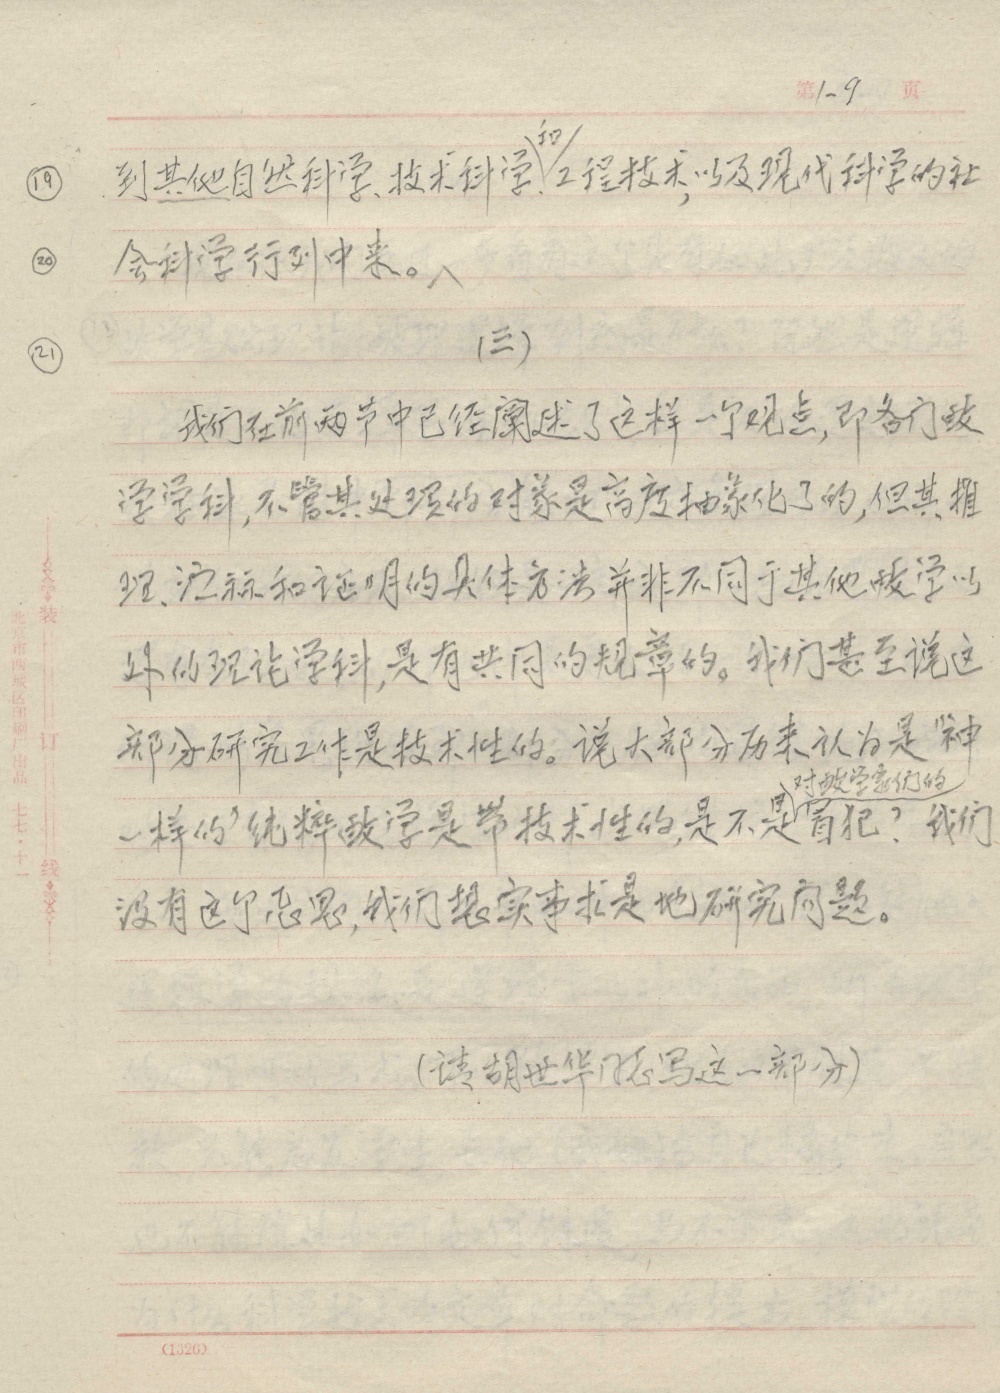 第1-9页
⑲ 到其他自然科学、技术科学和工程技术,以及现代科学的社
⑳ 会科学行列中来。
㉑ (三)
我们在前两节中已经阐述了这样一个观点,即各门数
学学科,不管其处理的对象是高度抽象化了的,但其推
理、演䅁和证明的具体方法并非不同于其他数学以
外的理论学科,是有共同的规章的。我们甚至说这
部分研究工作是技术性的。说大部分历来认为是“神
一样的”纯粹数学是带技术性的,是不是对数学家们的冒犯?我们
没有这个意思,我们想实事求是地研究问题。
(请胡世华同志写这一部分)
装订线
北京市西城区印刷厂出品 七七·十一
(1326)